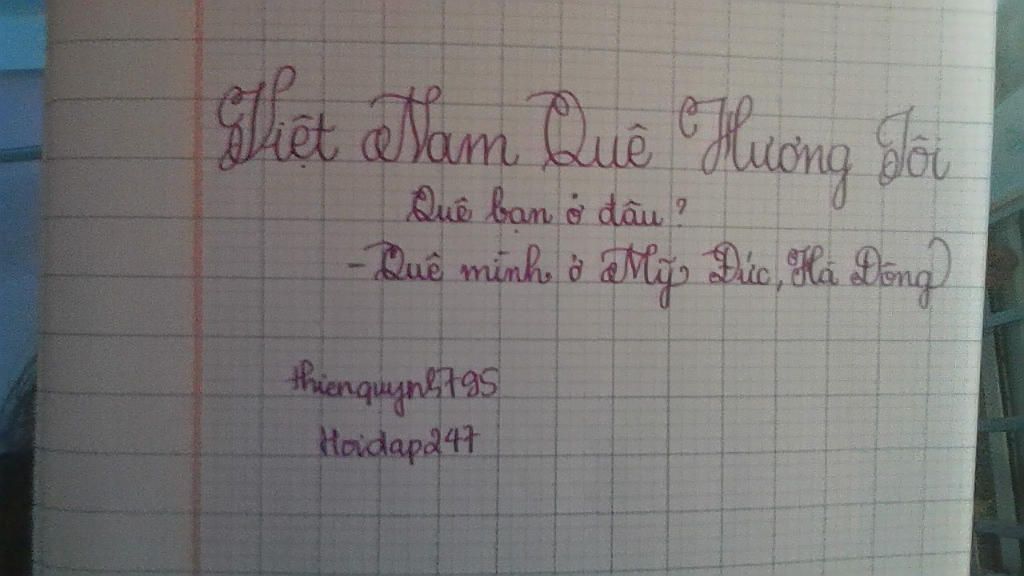 Việt Nam Quê Hương Tôi
Quê bạn ở dâu?
- Quê mình ở Mỹ Đức, Hà Đông
thienquynh5795
Hoidap247